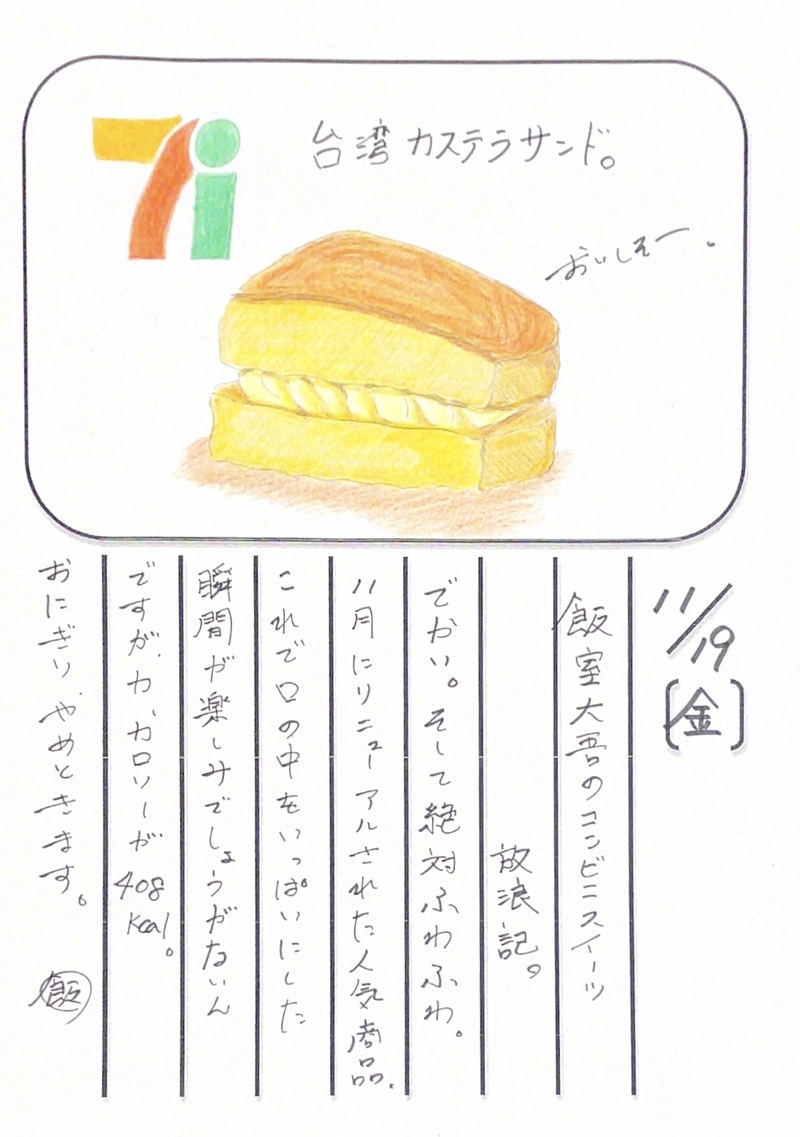 台湾カステラサンド。
おいしそー。
11/19
[金]
飯室大吾のコンビニスイーツ
放浪記。
でかい。そして絶対ふわふわ。
11月にリニューアルされた人気商品。
これで口の中をいっぱいにした
瞬間が楽しみでしょうがないん
ですが、カ、カロリーが408kcal。
おにぎり、やめときます。
飯